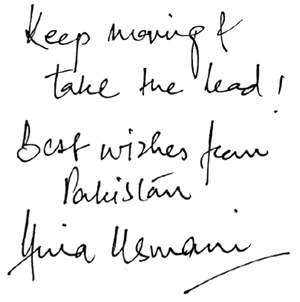 Keep moving &
take the lead!
Best wishes from
Pakistan
Usmani